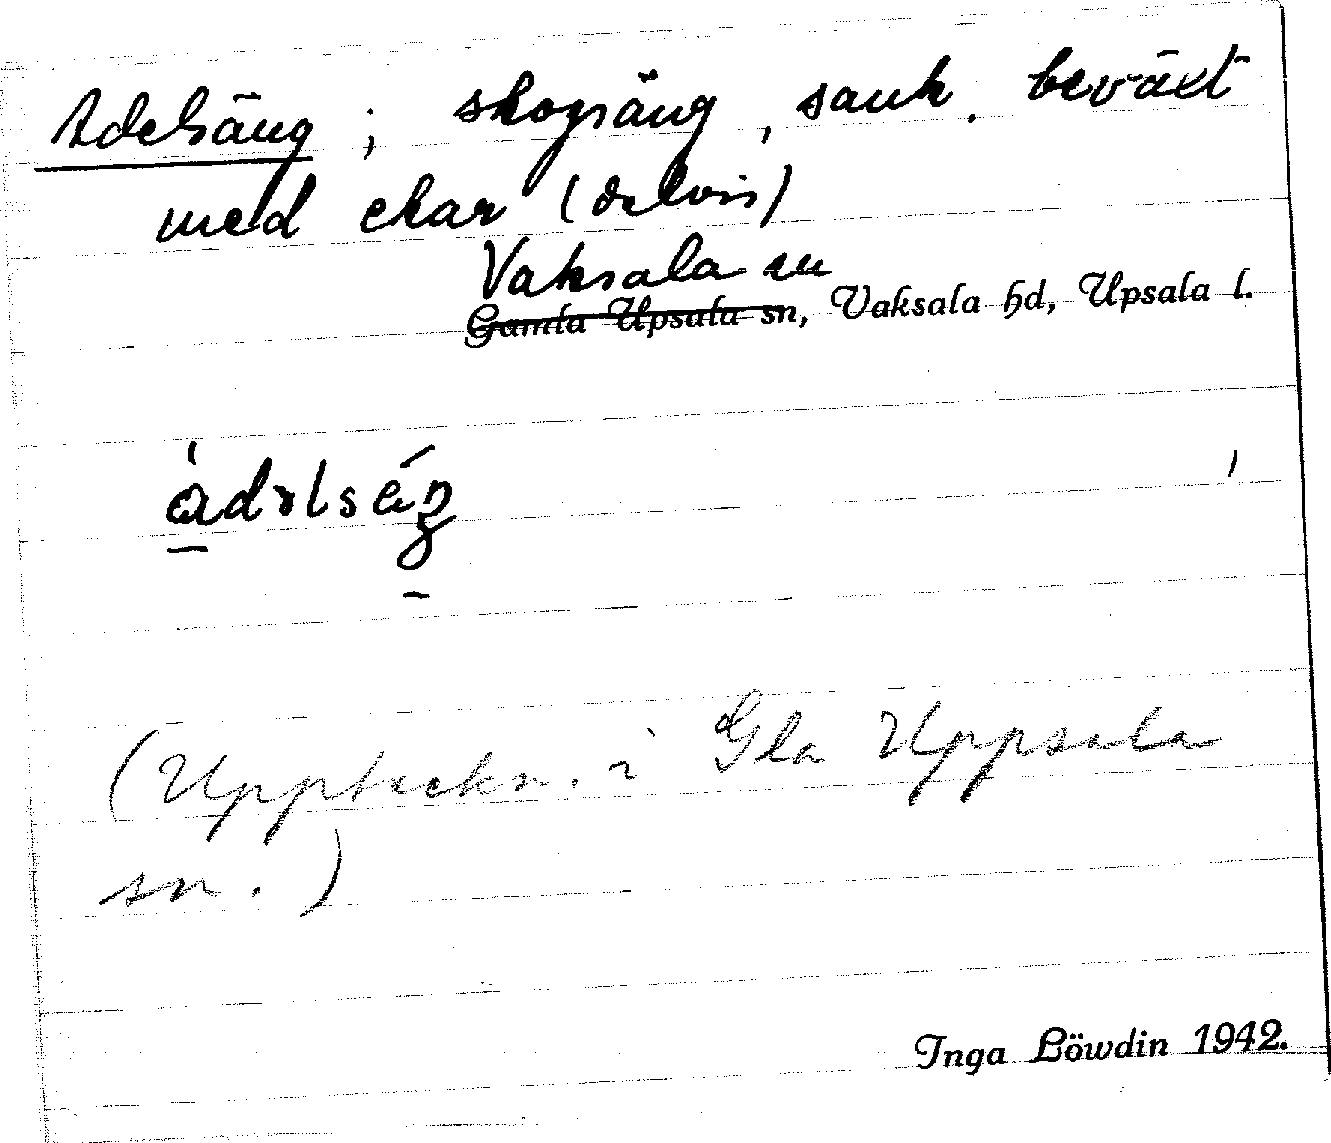 Adelsäng ; skogsäng, sank. beväxt
med ekar (delvis)
Vaksala sn
Gamla Upsala sn, Vaksala hd, Upsala l.
(Uppteckn. i Gla Uppsala
sn.)
Inga Löwdin 1942.